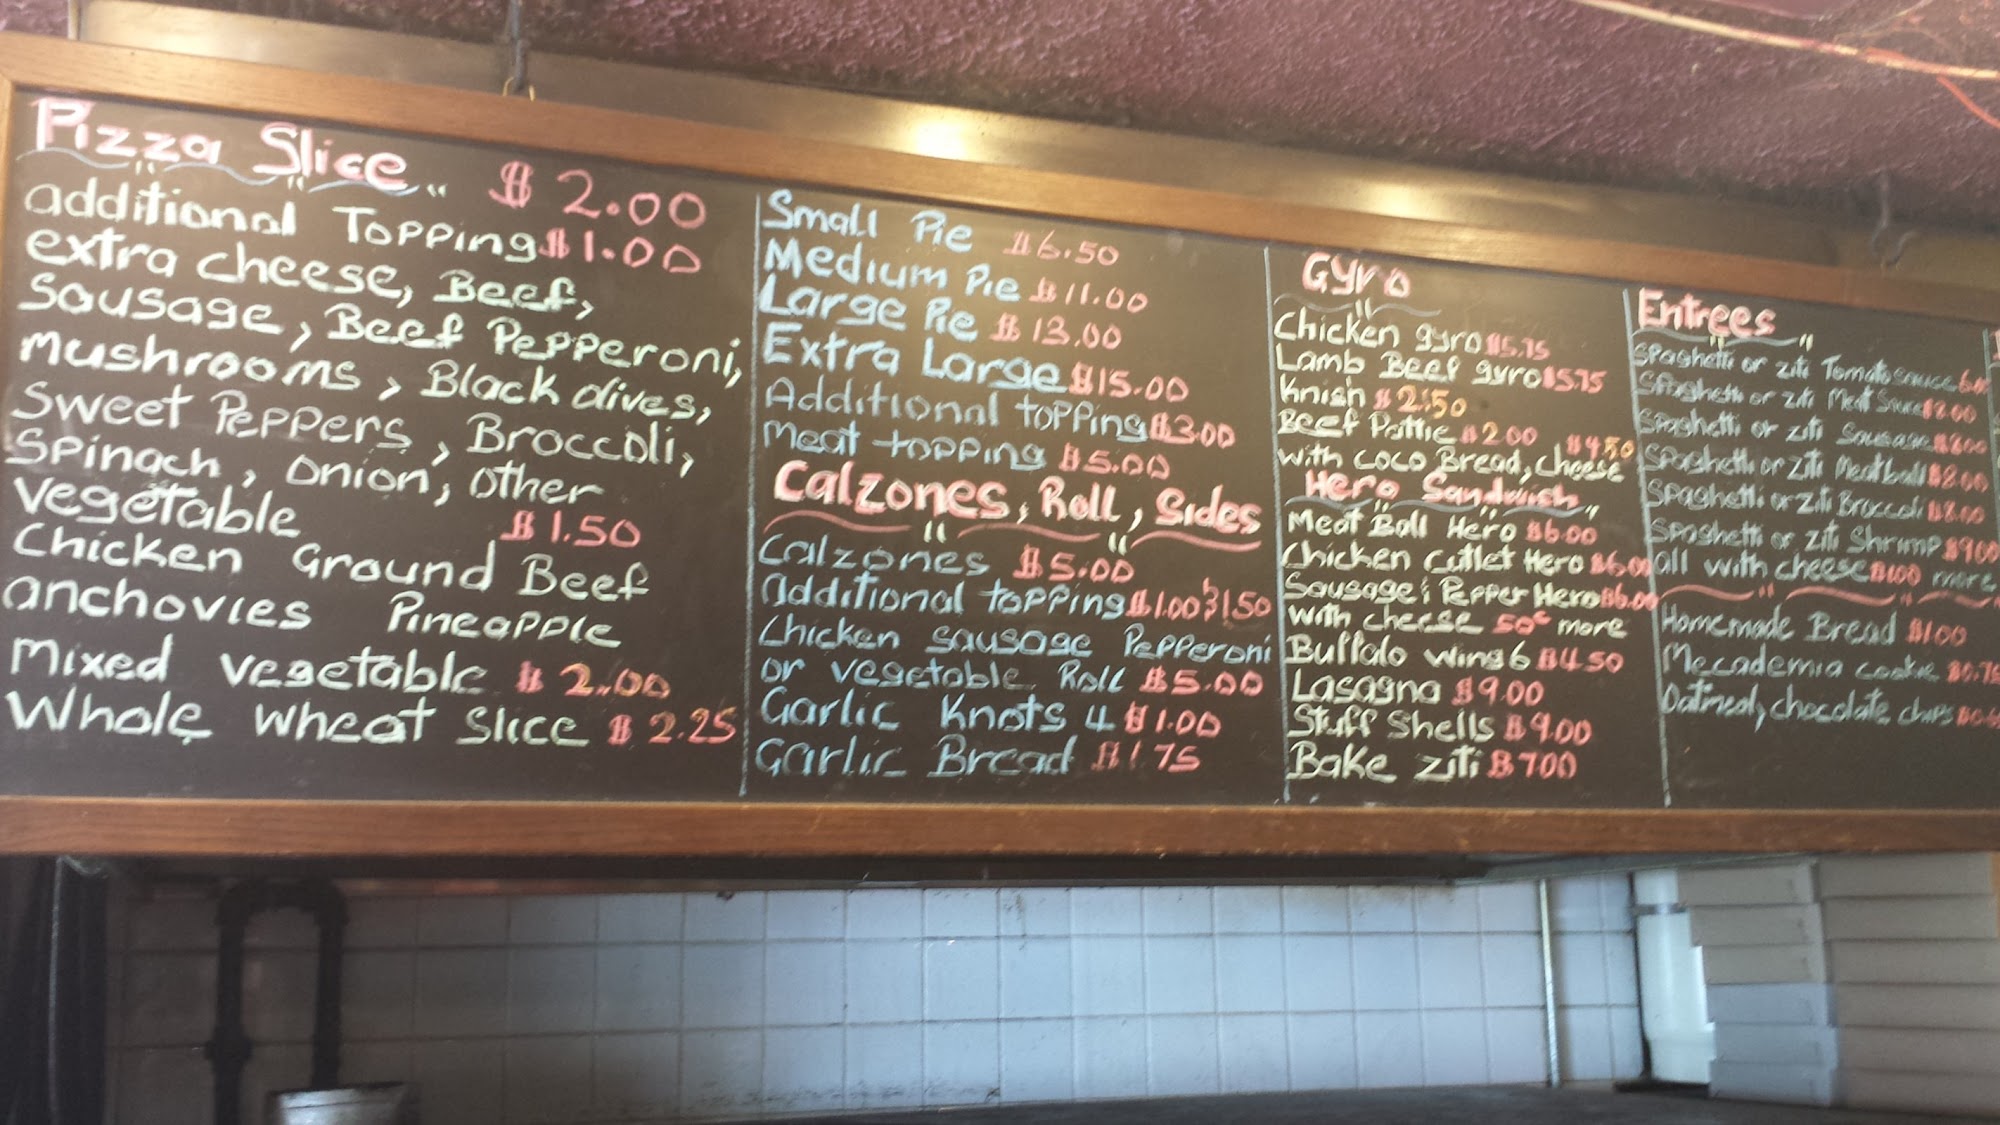 Pizza Slice $2.00
additional Topping $1.00
extra cheese, Beef,
Sausage, Beef Pepperoni,
mushrooms, Black olives,
Sweet Peppers, Broccoli,
Spinach, onion, other
vegetable $1.50
Chicken Ground Beef
anchovies Pineapple
Mixed vegetable $2.00
Whole wheat Slice $2.25
Small Pie $6.50
Medium Pie $11.00
Large Pie $13.00
Extra Large $15.00
Additional topping $3.00
meat topping $5.00
Calzones, Roll, Sides
Calzones $5.00
Additional topping $1.00 $1.50
Chicken sausage Pepperoni
or vegetable Roll $5.00
Garlic Knots 4 $1.00
Garlic Bread $1.75
Gyro
Chicken gyro $5.75
Lamb Beef gyro $5.75
Knish $2.50
Beef Pattie $2.00 $4.50
with coco Bread, cheese
Hero Sandwish
Meat Ball Hero $6.00
Chicken Cutlet Hero $6.00
Sausage & Pepper Hero $6.00
with cheese 50c more
Buffalo wing 6 $4.50
Lasagna $9.00
Stuff Shells $9.00
Bake Ziti $7.00
Entrees
Spaghetti or ziti Tomato sauce
Spaghetti or ziti Meat Sauce $8.00
Spaghetti or ziti Sausage $8.00
Spaghetti or ziti Meatball $8.00
Spaghetti or ziti Broccoli $8.00
Spaghetti or ziti Shrimp $9.00
all with cheese $1.00 more
Homemade Bread $1.00
Mecademia cookie $0.75
Oatmeal, chocolate chips